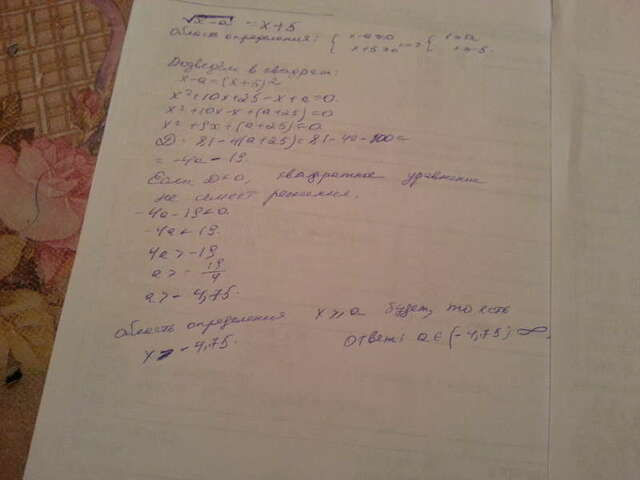 √x-a = x+5
Область определения: { x-a≥0 x+5≥0 => { x≥a x≥-5.
Возведём в квадрат:
x-a=(x+5)²
x²+10x+25-x+a=0.
x²+10x-x+(a+25)=0
x²+9x+(a+25)=0.
D=81-4(a+25)=81-4a-100=
= -4a-19.
Если D<0, квадратное уравнение
не имеет решения.
-4a-19<0.
-4a<19.
4a>-19
a>-19/4
a>-4,75.
Область определения x≥a будет, то есть
x>-4,75.
Ответ: a∈(-4,75);∞.